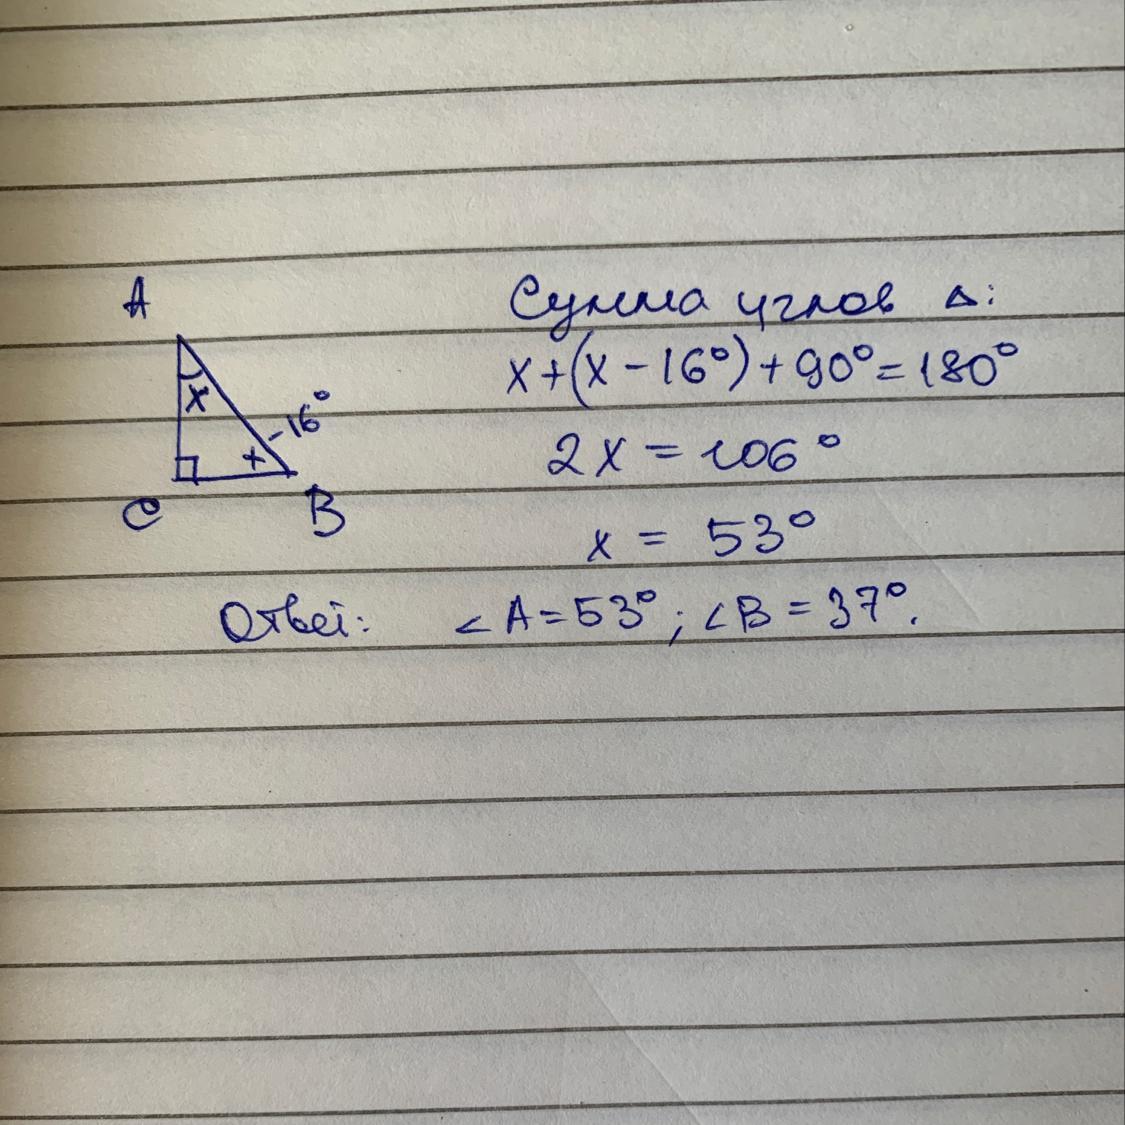 A
x
-16°
x
C
B
Сумма углов Δ:
x+(x-16°)+90°=180°
2x=106°
x=53°
Ответ: ∠A=53°; ∠B=37°.